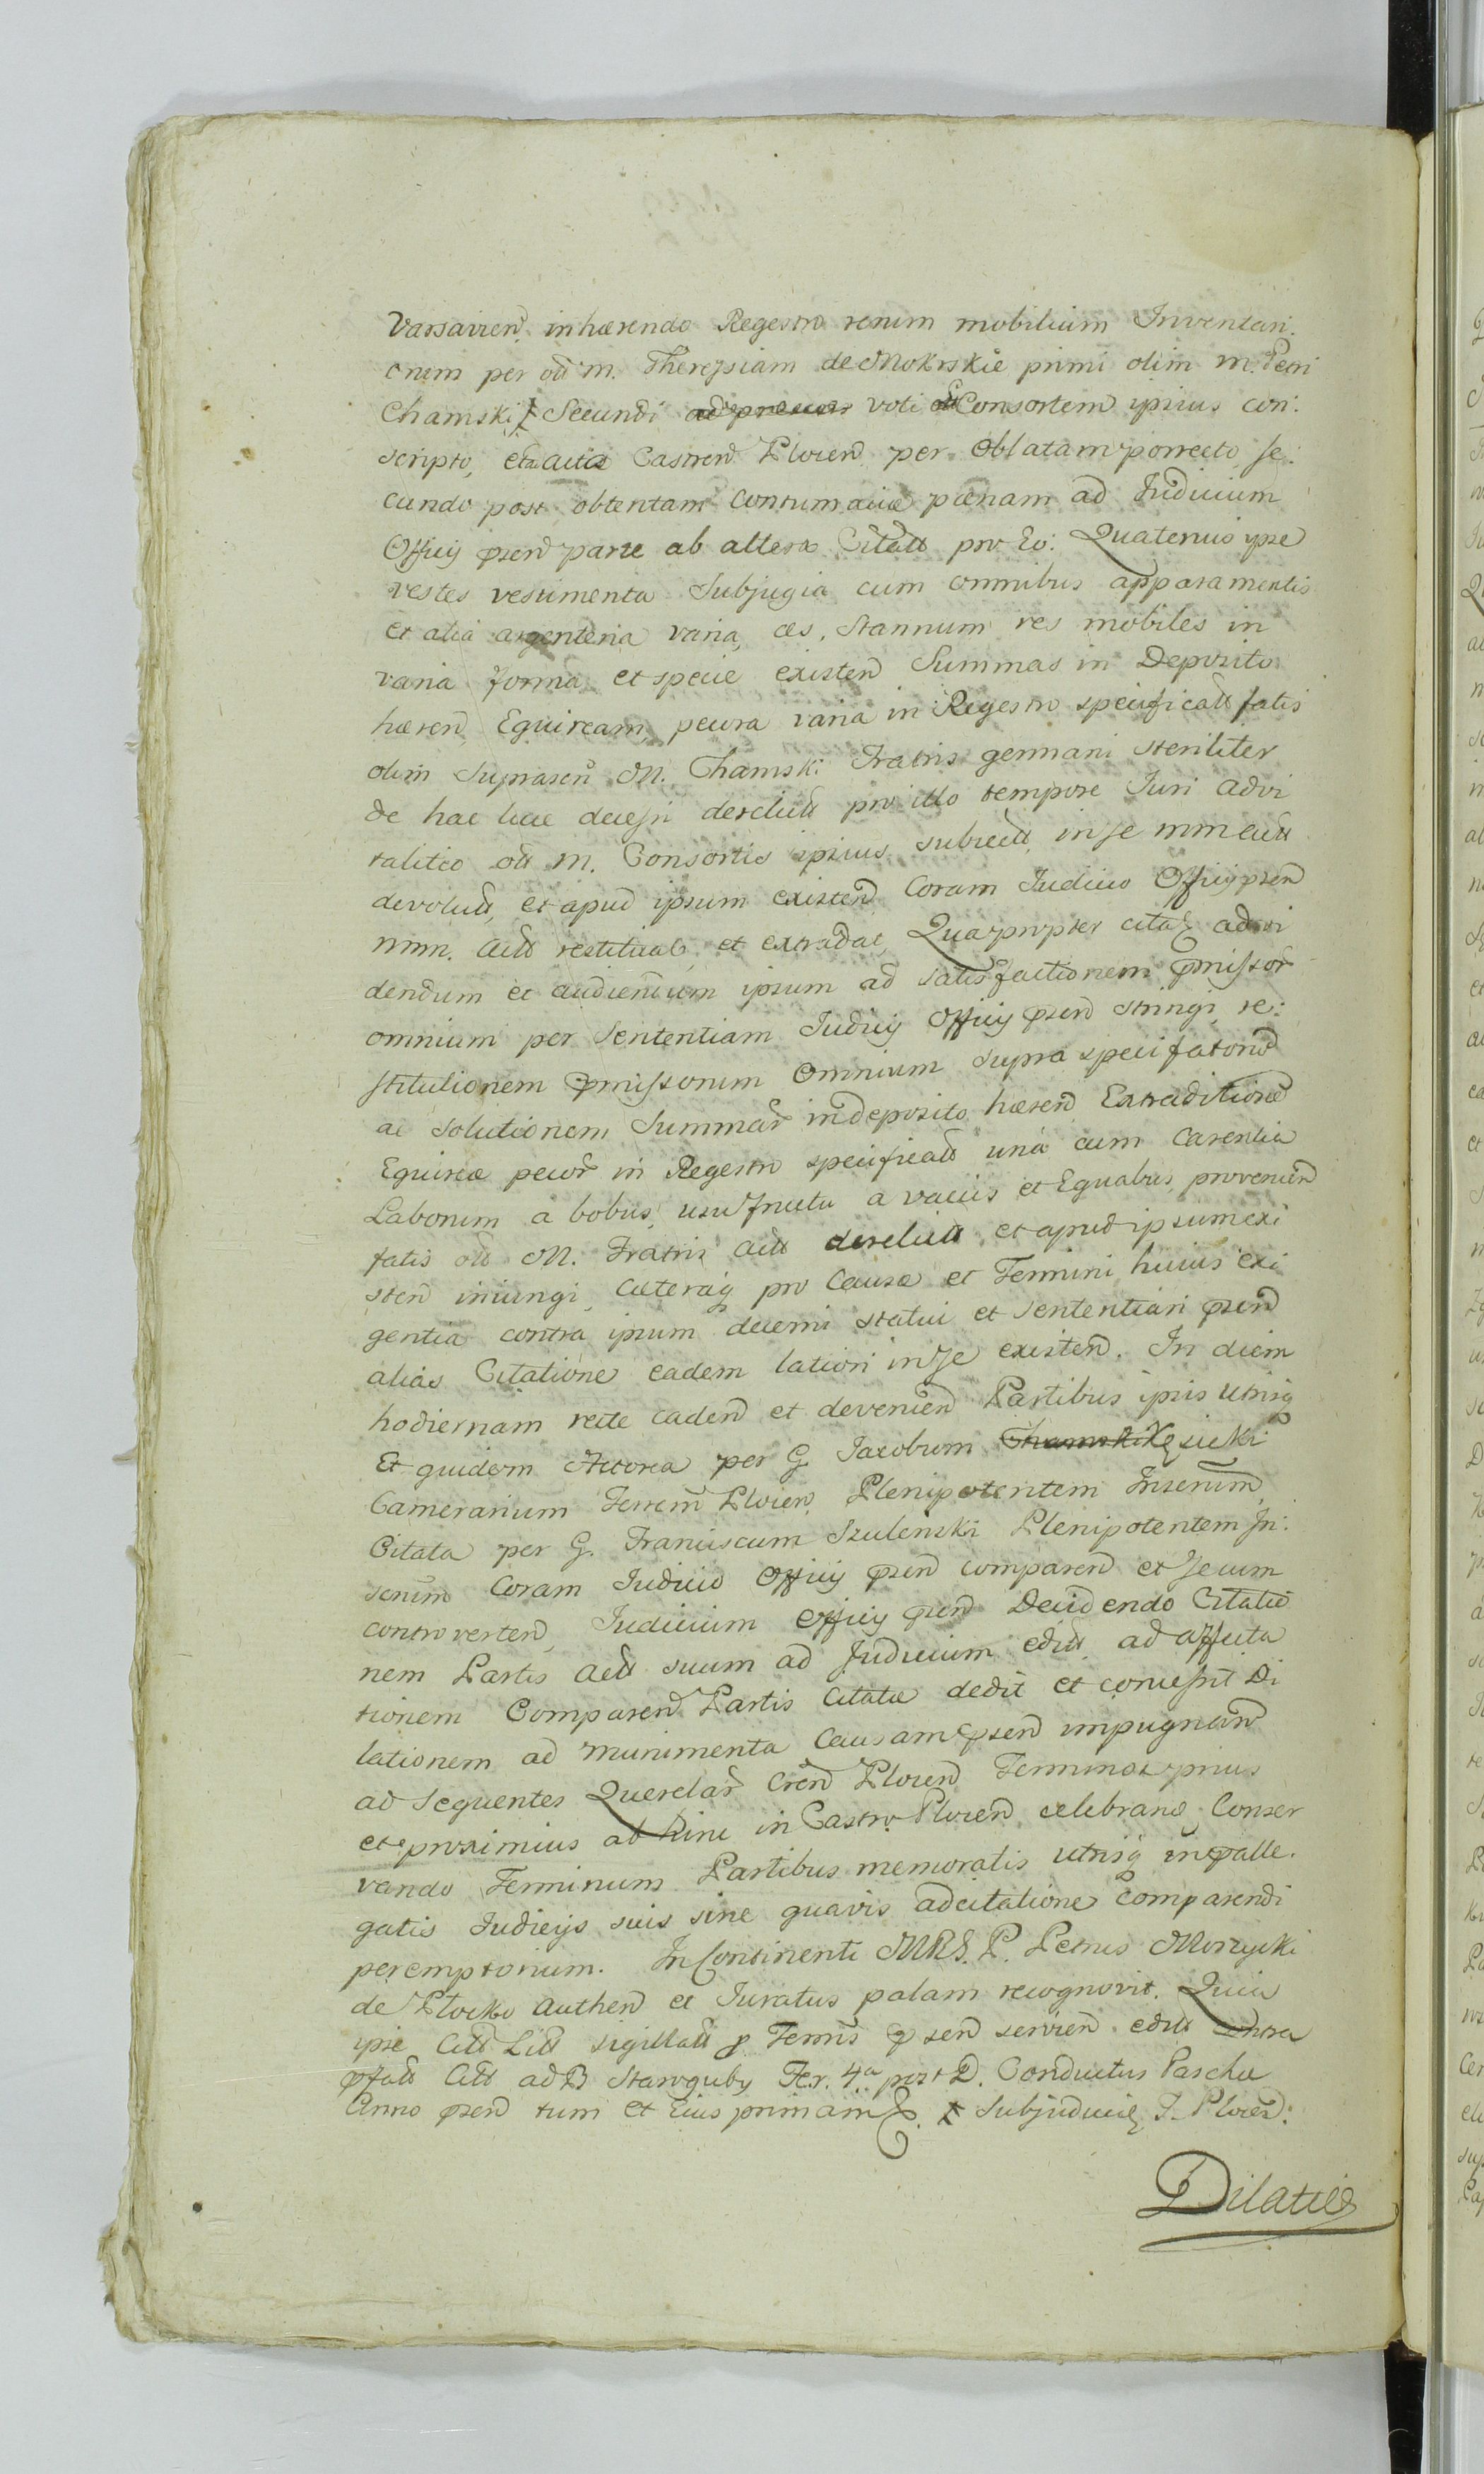 Varsavien. inhærendo Regestro rerum mobilium Inventari.
onem per olim M. Theressiam de Mokrskie primi olim M. Petri
Chamski Secundi voti Consortem ipsius con:
scripto, Castren Plocen per oblatam porrecto, se:
cundo post obtentam contumaciæ pænam ad Iudicium
Officij præsen parte ab altera Citatt pro Eo: Quatenus ipse
vestes vestimenta Subjugia cum omnibus apparamentis
et alia argenteria varia, æs, Stannum res mobiles in
varia forma et specie existen Summas in Deposito
hæren, Equiream, pecora varia in Regestro specificatt fatis
olim suprascri M. Chamski Fratris germani steriliter
de hac luce decessi derelictt pro illo tempore Iuri advi
talitio M. Consortis ipsius subiectt, in se
devolutt, et apud ipsum existen Coram Iudicio Officij præsen
restituat, et extradat, Quapropter citat ad vi
dendum et audiendum ipsum ad satisfactionem præmissor
omnium per Sententiam Iudicij Officij præsen stringi, re:
stitutionem præmissorum omnium supra specifatorum
ac solutionem Summar in deposito hæren Extraditione
Equireæ pecor in Regestro specificatt una cum carentia
Laborum a bobus, usufructu a vaccis et Equabus provenien
fatis M. Fratris derelictt et apud ipsum exi
sten iniungi, Cæteraq pro Causæ et Termini huius exi
gentia contra ipsum decerni statui et sententiari præsen
alias Citatione eadem latiori in se existen. In diem
hodiernam recte caden et devenien Partibus ipsis utrisq
Et quidem Actorea per G. Iacobum Chamski Kęsicki
Camerarium Terrem Plocen, Plenipotentem
Citata per G. Franciscum Szulenski Plenipotentem In:
Coram Iudicio Officij præsen comparen et secum
controverten, Iudicium Officij præsen Decidendo Citatio
nem Partis suum ad Iudicium ad affecta
tionem Comparen Partis Citatæ dedit et concessit Di
lationem ad munimenta Causam præsen impugnan
ad sequentes Querelar Plocen Terminos prius
et proximius ab hinc in Castro Plocen celebran. Conser
vando Terminum Partibus memoratis utrisq in præalle.
gatis Iudicijs suis sine quavis adcitatione comparendi
peremptorium. In Continenti MRS. P. Petrus Morzycki
de Plocko authen et Iuratus palam recognovit. Quia
ipse sigillatt p Termis præsen servien.
ad B Staroguby Fer. 4a post D. Conductus Paschæ
Anno præsen tum et Eius primam &. Plocen:
Dilatio